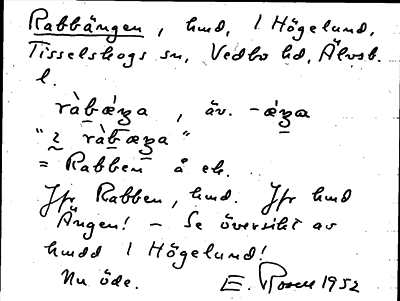 Rabbängen, hmd, 1 Högelund,
Tisselskogs sn, Vedbo hd, Älvsb.
l.
ràbǽŋa, äv. -ǽŋa
"ràbæŋa"
= Rabben å ek.
Jfr Rabben, hmd. Jfr hmd
Ängen! - Se översikt av
hmdd 1 Högelund!
Nu öde. E. Rosell 1952